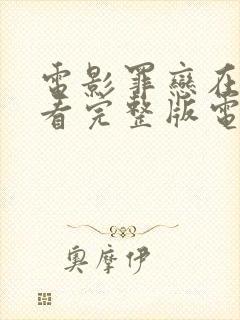 電影罪戀在
看完整版電
奧摩伊